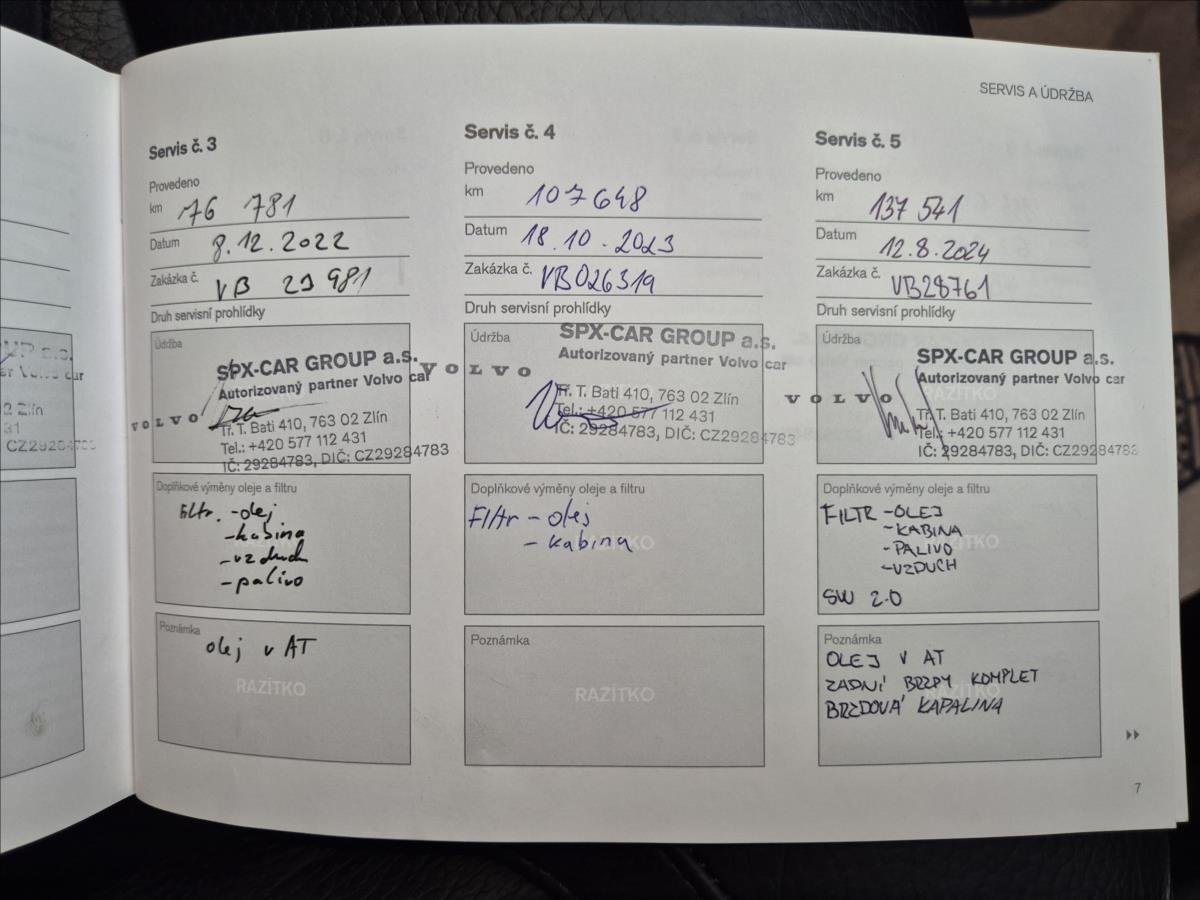 SERVIS A ÚDRŽBA
Servis č. 3
Provedeno
km 76 781
Datum 8.12.2022
Zakázka č. VB 23 981
Druh servisní prohlídky
Údržba
SPX-CAR GROUP a.s.
Autorizovaný partner Volvo car
VOLVO
Tř. T. Bati 410, 763 02 Zlín
Tel.: +420 577 112 431
IČ: 29284783, DIČ: CZ29284783
Doplňkové výměny oleje a filtru
Filtr. -olej
-kabina
-vzduch
-palivo
RAZÍTKO
Poznámka
olej v AT
RAZÍTKO
Servis č. 4
Provedeno
km 107648
Datum 18.10.2023
Zakázka č. VB026319
Druh servisní prohlídky
Údržba
SPX-CAR GROUP a.s.
Autorizovaný partner Volvo car
VOLVO
Tř. T. Bati 410, 763 02 Zlín
Tel.: +420 577 112 431
IČ: 29284783, DIČ: CZ29284783
Doplňkové výměny oleje a filtru
Filtr - olej
- kabina
RAZÍTKO
Poznámka
RAZÍTKO
Servis č. 5
Provedeno
km 137 541
Datum 12.8.2024
Zakázka č. VB28761
Druh servisní prohlídky
Údržba
SPX-CAR GROUP a.s.
Autorizovaný partner Volvo car
RAZÍTKO
VOLVO
Tř. T. Bati 410, 763 02 Zlín
Tel.: +420 577 112 431
IČ: 29284783, DIČ: CZ2928478
Doplňkové výměny oleje a filtru
FILTR -OLEJ
-KABINA
-PALIVO
-VZDUCH
RAZÍTKO
SW 2.0
Poznámka
OLEJ V AT
ZADNÍ BRZDY KOMPLET
BRZDOVÁ KAPALINA
RAZÍTKO
7